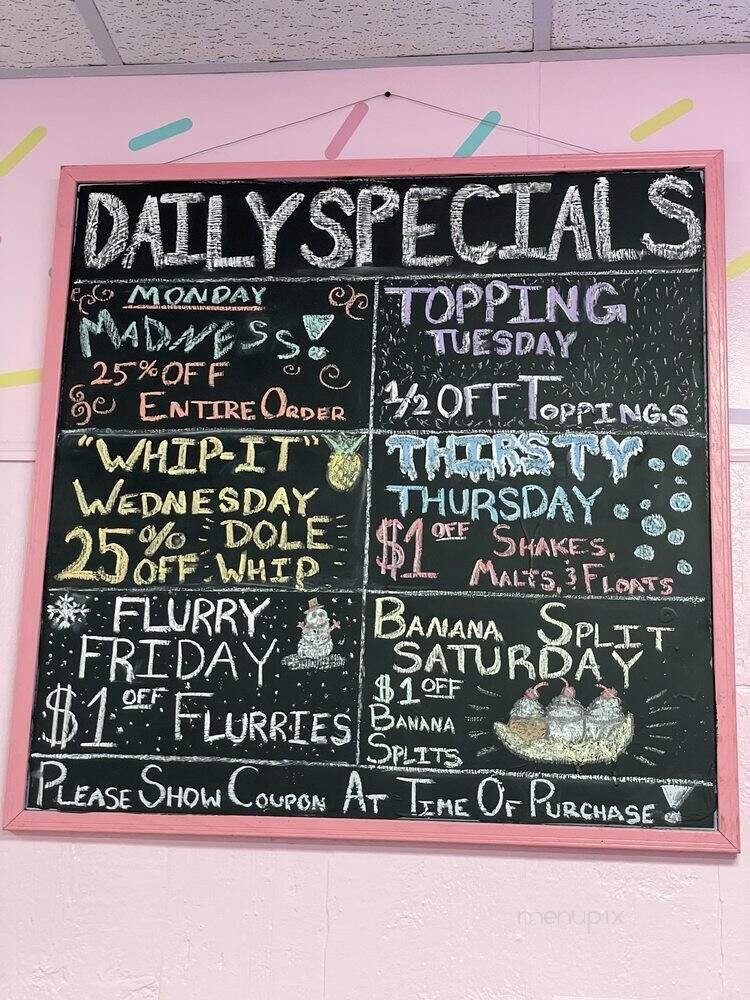 DAILY SPECIALS
MONDAY
MADNESS!
25% OFF
ENTIRE ORDER
TOPPING
TUESDAY
1/2 OFF TOPPINGS
"WHIP-IT"
WEDNESDAY
25% OFF DOLE WHIP
THIRSTY
THURSDAY
$1 OFF SHAKES,
MALTS, & FLOATS
FLURRY
FRIDAY
$1 OFF FLURRIES
BANANA SPLIT
SATURDAY
$1 OFF
BANANA
SPLITS
PLEASE SHOW COUPON AT TIME OF PURCHASE!
menupix